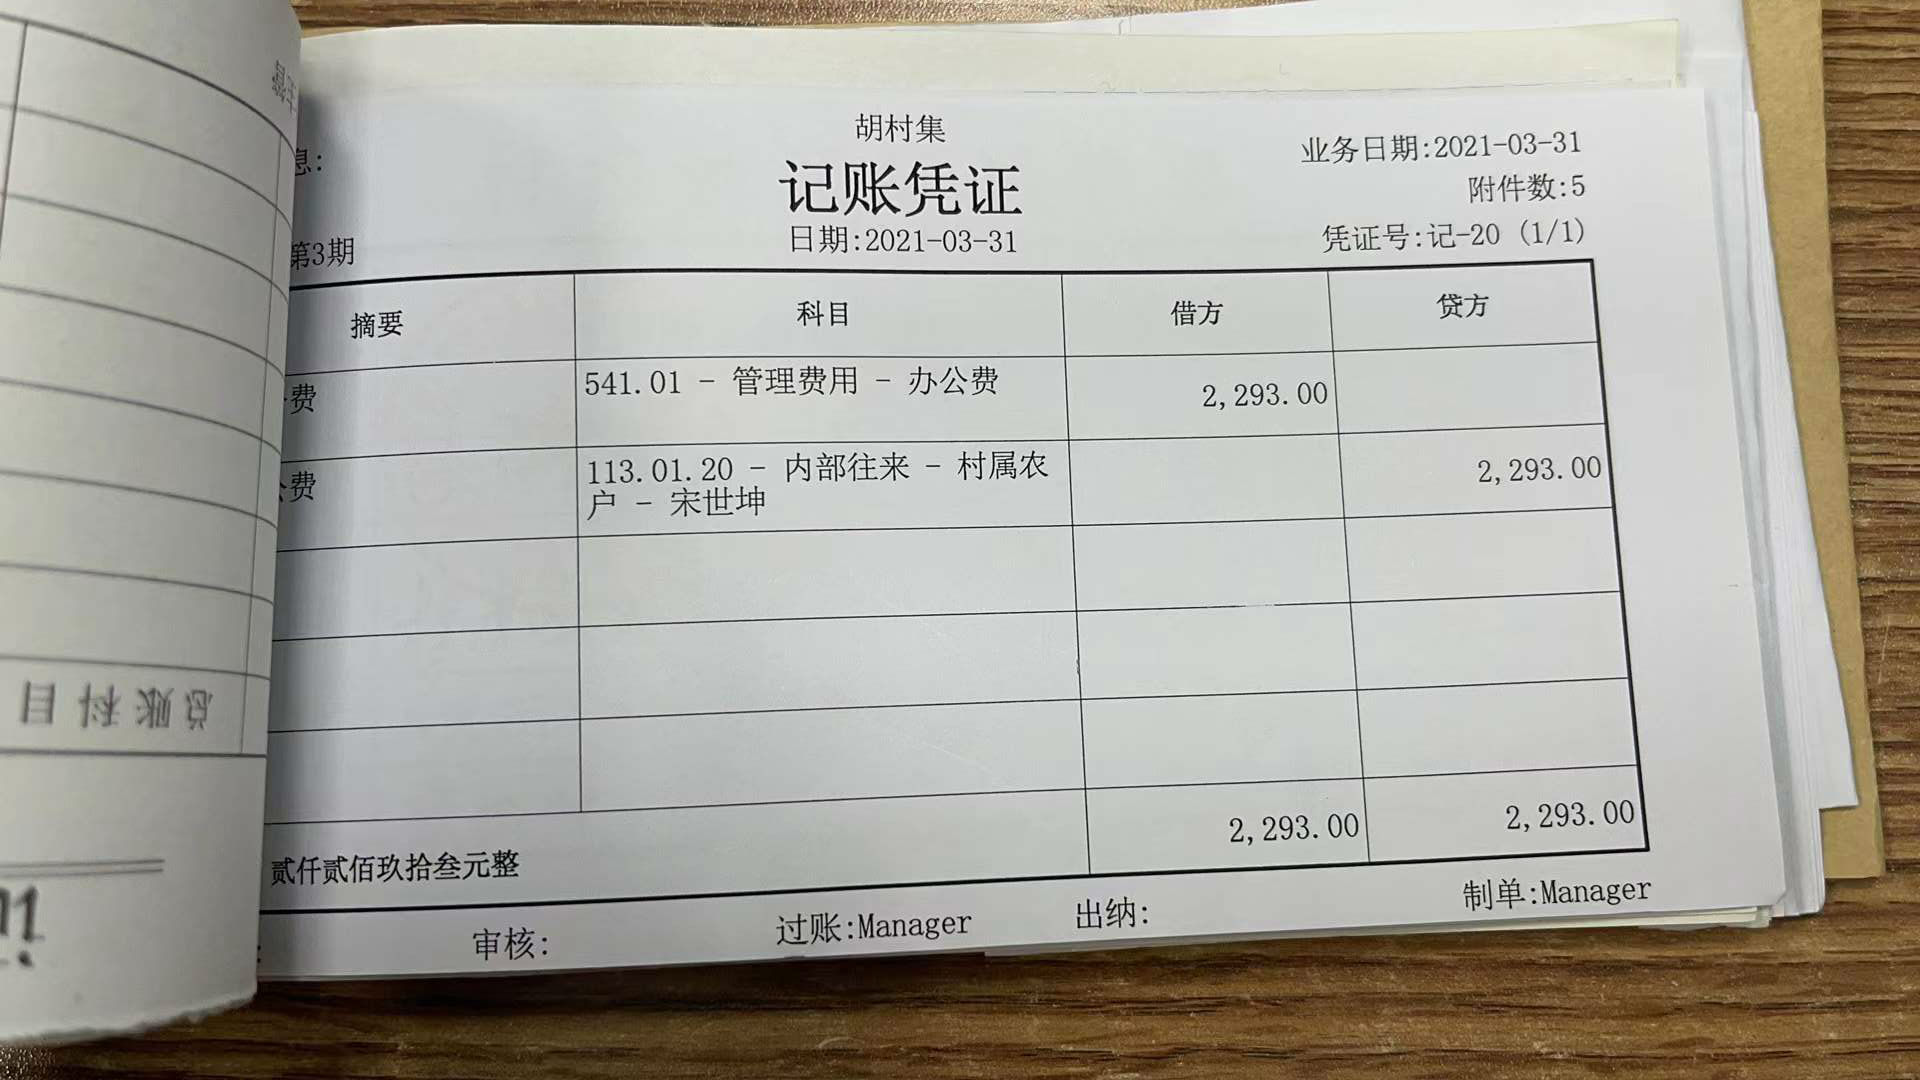 胡村集
记账凭证
日期:2021-03-31
业务日期:2021-03-31
附件数:5
凭证号:记-20 (1/1)
息:
第3期
摘要 科目 借方 贷方
费 541.01 - 管理费用 - 办公费 2,293.00
公费 113.01.20 - 内部往来 - 村属农 2,293.00
户 - 宋世坤
贰仟贰佰玖拾叁元整 2,293.00 2,293.00
审核: 过账:Manager 出纳: 制单:Manager
总账科目